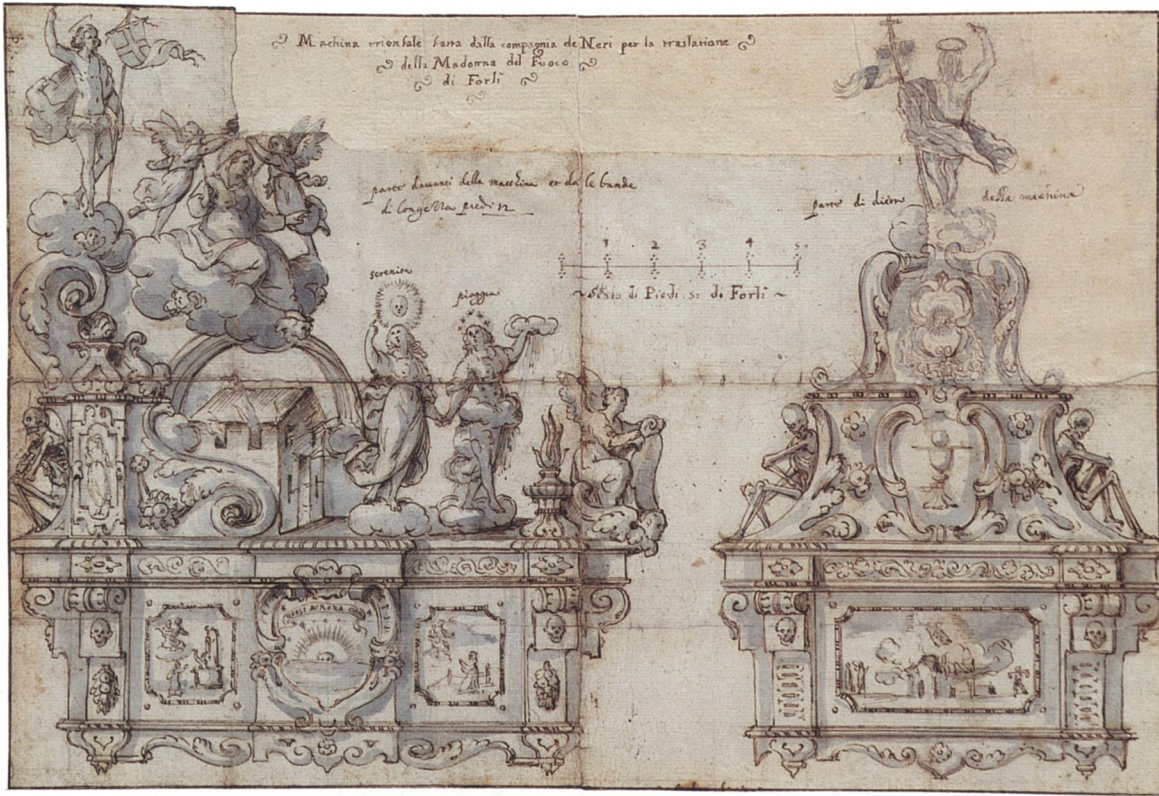 Machina trionfale fatta dalla compagnia de Neri per la traslatione
della Madonna del Fuoco
di Forlì
parte davanti della machina et da le bande
di longezza piedi 12
parte di dietro della machina
1 2 3 4 5
Scala di Piedi 5: di Forlì
serenità
pioggia
AURORA